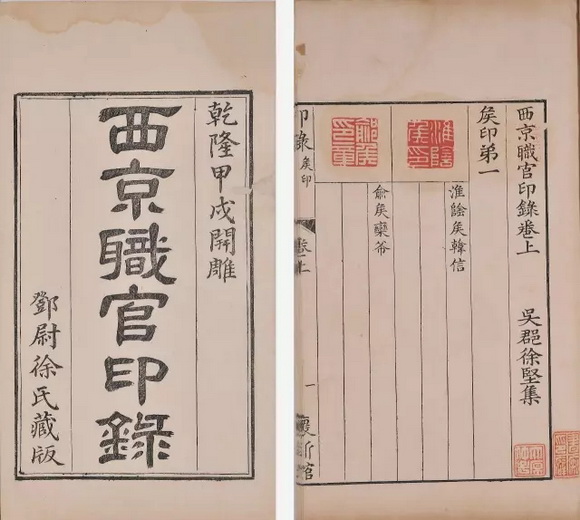 乾隆甲戌開雕
西京職官印錄
鄧尉徐氏藏版
西京職官印錄卷上
吳郡徐堅集
矦印弟一
淮陰矦印
淮陰矦韓信
俞矦欒布
印錄
矦印
卷上
一